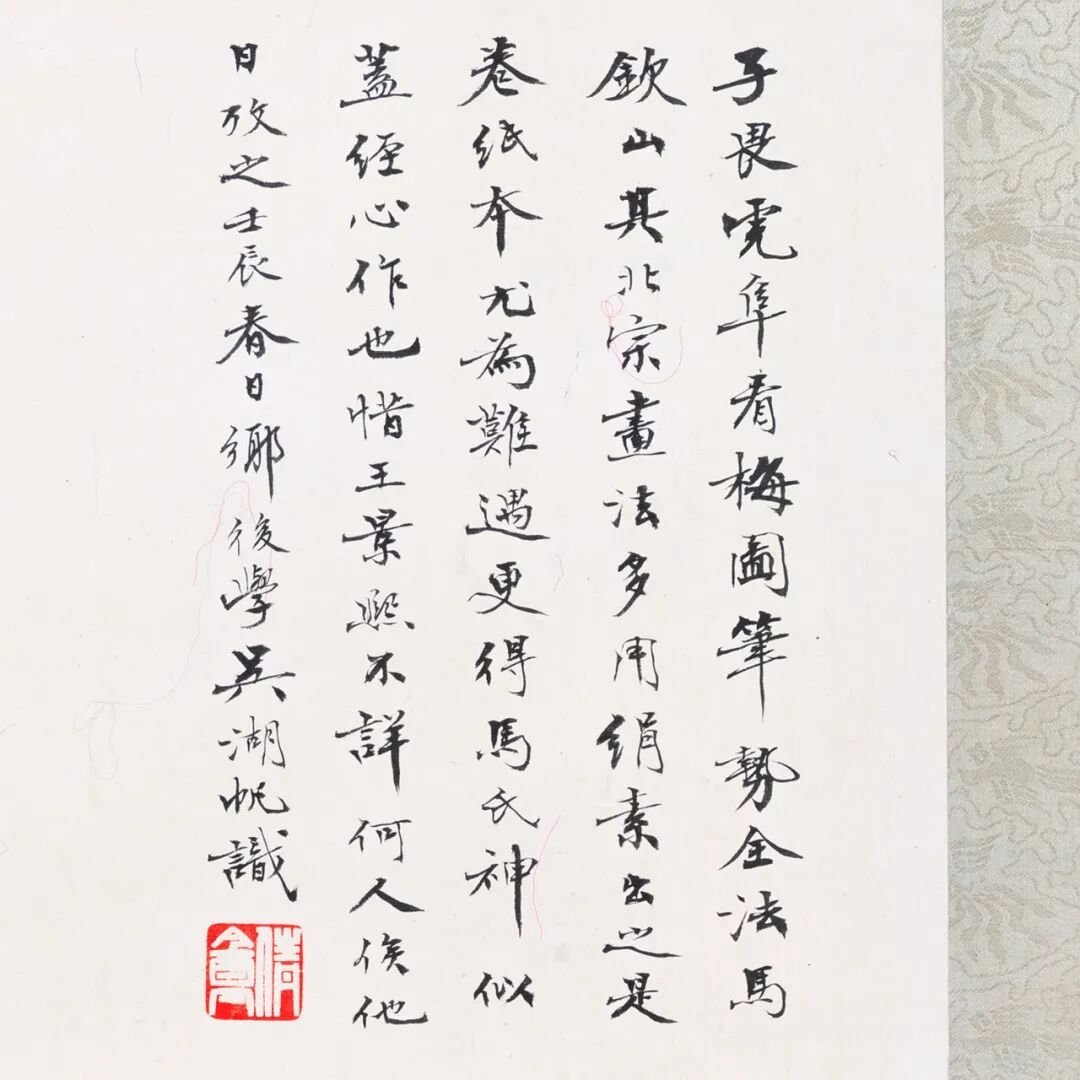 子畏虎阜看梅圖筆勢全法馬
欽山其北宗畫法多用絹素出之是
卷紙本尤為難遇更得馬氏神似
蓋經心作也惜王景熙不詳何人俟他
日攷之壬辰春日鄉後學吳湖帆識
倩盦